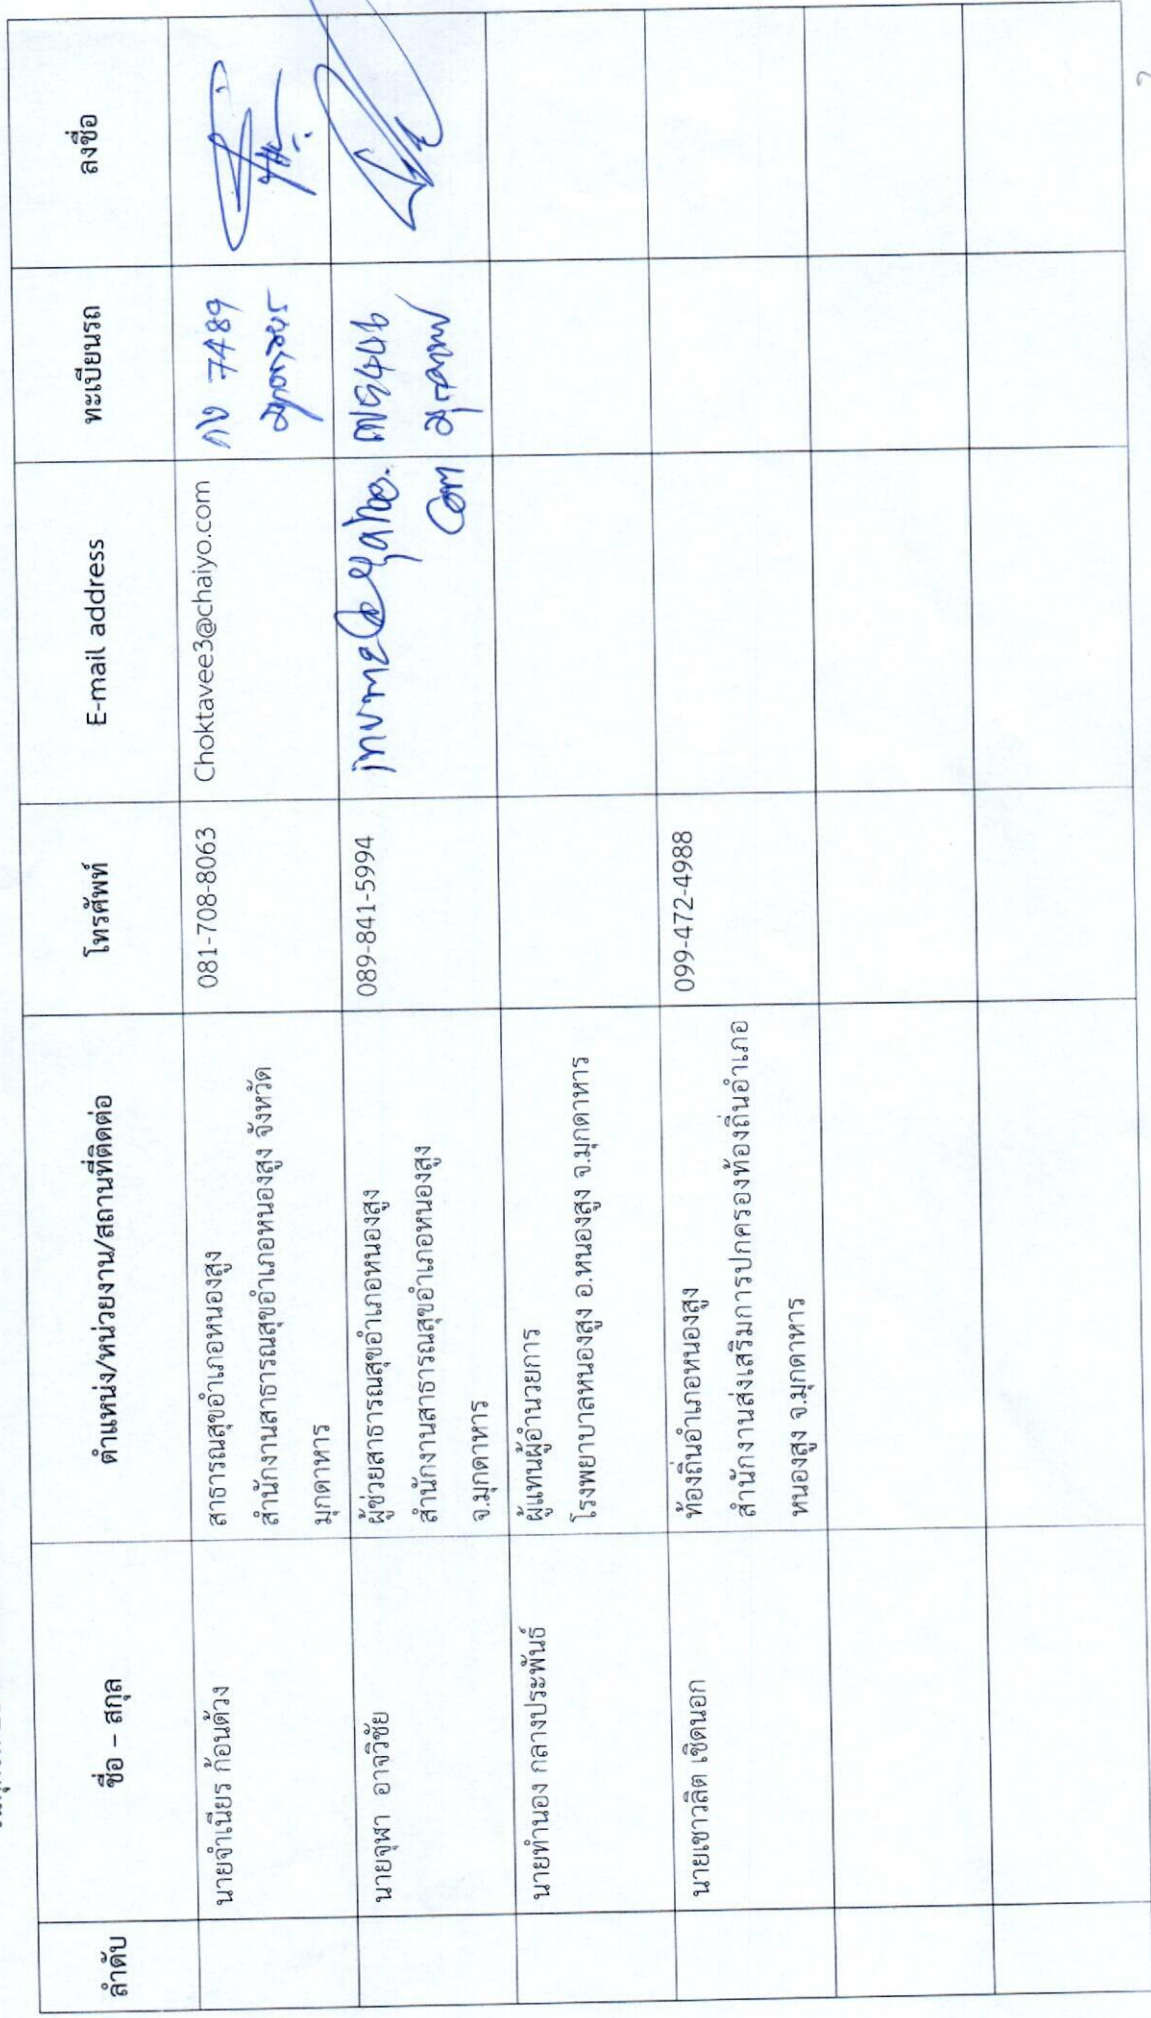 ลำดับ
ชื่อ – สกุล
ตำแหน่ง/หน่วยงาน/สถานที่ติดต่อ
โทรศัพท์
E-mail address
ทะเบียนรถ
ลงชื่อ
นายจำเนียร ก้อนด้วง
สาธารณสุขอำเภอหนองสูง
สำนักงานสาธารณสุขอำเภอหนองสูง จังหวัด
มุกดาหาร
081-708-8063
Choktavee3@chaiyo.com
7489
นายจุฬา อาจวิชัย
ผู้ช่วยสาธารณสุขอำเภอหนองสูง
สำนักงานสาธารณสุขอำเภอหนองสูง
จ.มุกดาหาร
089-841-5994
com
นายทำนอง กลางประพันธ์
ผู้แทนผู้อำนวยการ
โรงพยาบาลหนองสูง อ.หนองสูง จ.มุกดาหาร
นายเชาวลิต เชิดนอก
ท้องถิ่นอำเภอหนองสูง
สำนักงานส่งเสริมการปกครองท้องถิ่นอำเภอ
หนองสูง จ.มุกดาหาร
099-472-4988